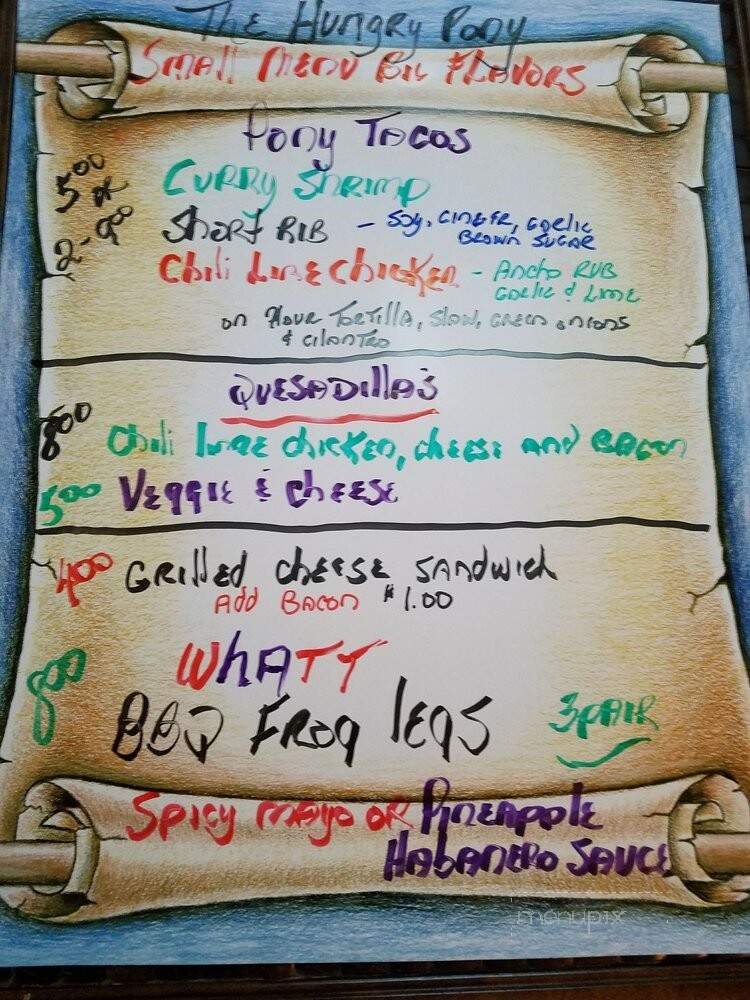 The Hungry Pony
Small Menu Big Flavors
Pony Tacos
5 00 or 2 - 9 00
Curry Shrimp
Short Rib - Soy, Ginger, Garlic
Brown Sugar
Chili Lime Chicken - Ancho Rub
Garlic & Lime
on Flour Tortilla, Slaw, Green onions
& cilantro
Quesadilla's
8 00 Chili lime chicken, cheese and Bacon
5 00 Veggie & cheese
4 00 Grilled cheese sandwich
Add Bacon $1.00
WHATT
8 00 BBQ Frog legs 3 pair
Spicy mayo or Pineapple
Habanero Sauce
menupix